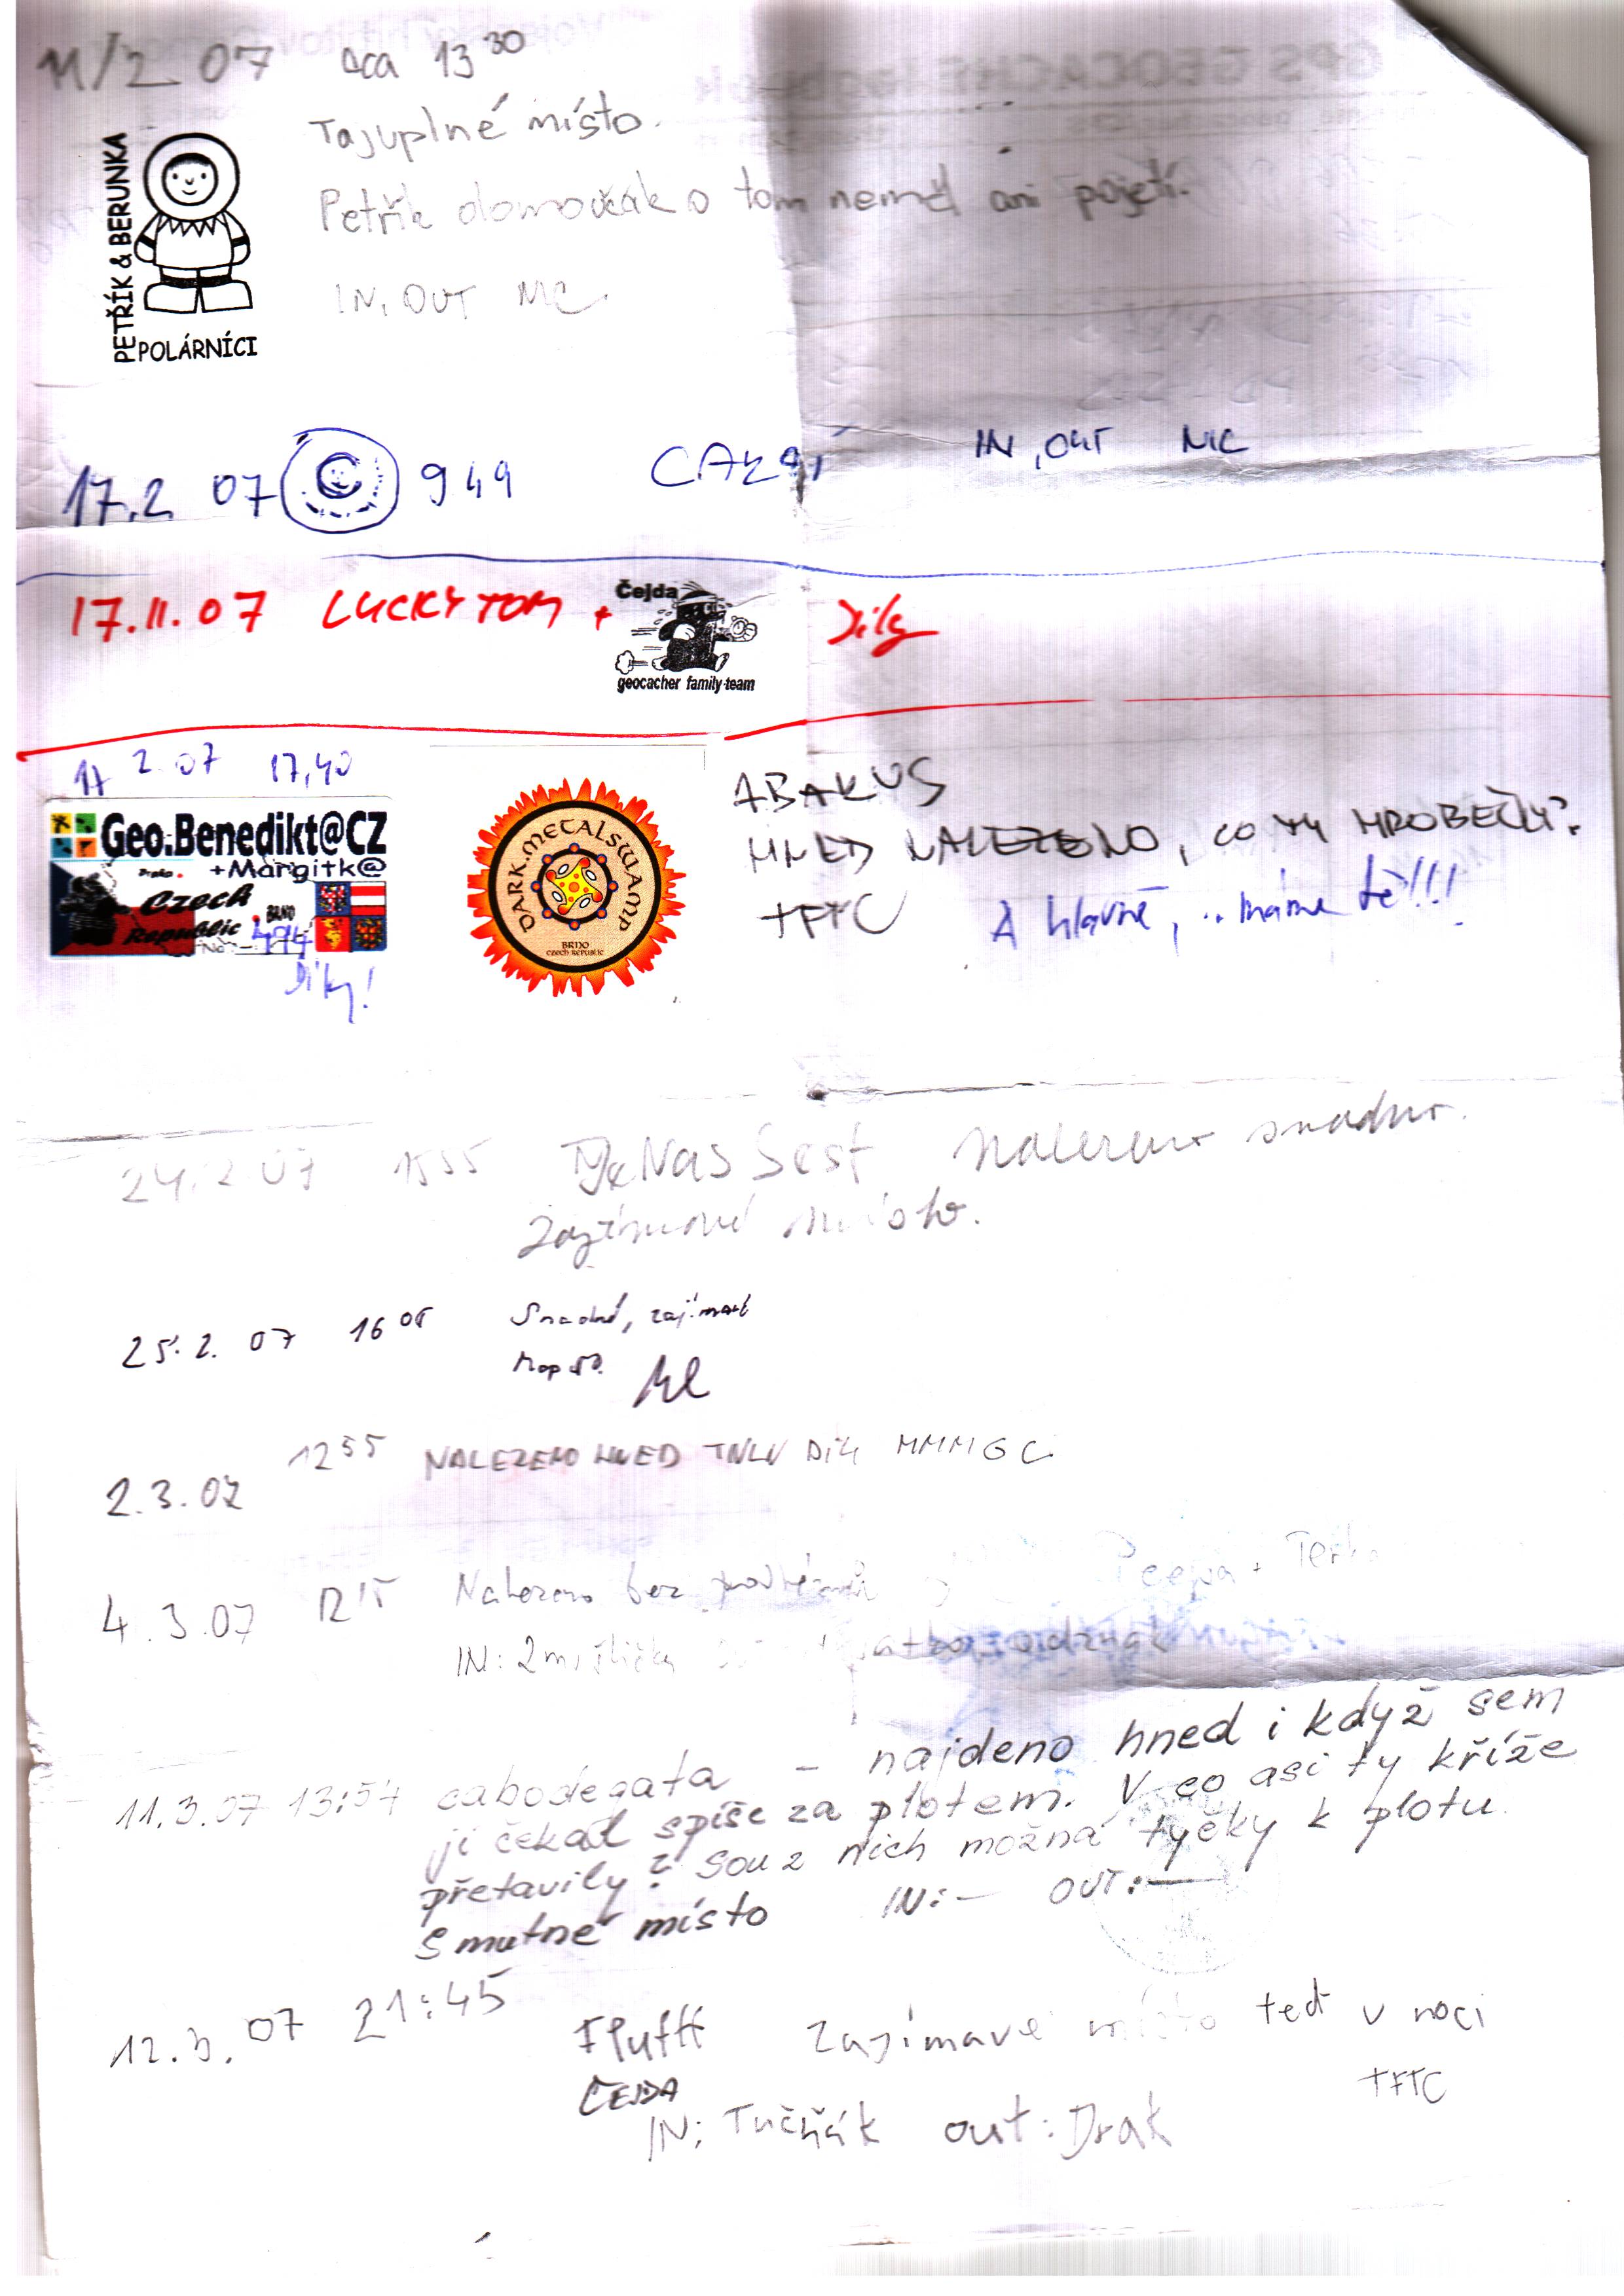 11/2 07 cca 13 30
Tajuplné místo.
Petřík domovák o tom neměl ani pojetí.
IN, OUT NIC.
PETŘÍK & BERUNKA
POLÁRNÍCI
17.2 07 C 949 IN, OUT NIC
17.II.07 LUCKYTOM + Čejda Díky
geocacher family team
17 2 07 17,40
Geo.Benedikt@CZ
+Margitk@
Czech
Republic BRNO
No 494
Díky!
DARK.METALSWAMP
BRNO
CZECH REPUBLIC
ABAKUS
HNED NALEZENO, CO TY HROBEČKY?
TFTC A hlavně, .. máme tě!!!
24.2 07 15 55 NasSest Nalezeno snadno.
Zajímavé místo.
25.2. 07 16 05 Snadné, zajímavé
2.3.07 12 55 NALEZENO HNED TNLN Díky MMMGC
4.3.07 12 15 Nalezeno bez
IN: 2 mušličky
11.3.07 13:54 cabodegata - najdeno hned i když sem
ji čekal spíše za plotem. V co asi ty kříže
přetavily? Sou z nich možná tyčky k plotu.
Smutné místo IN: — OUT: —
12.3.07 21:45 Fluffi Zajímavé místo teď v noci
ČEJDA TFTC
IN: Tučňák out: Drak